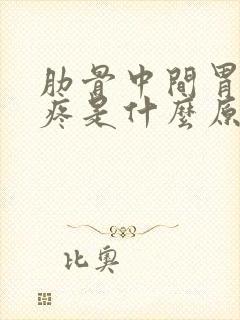 肋骨中間胃
疼是什麼原
比奧